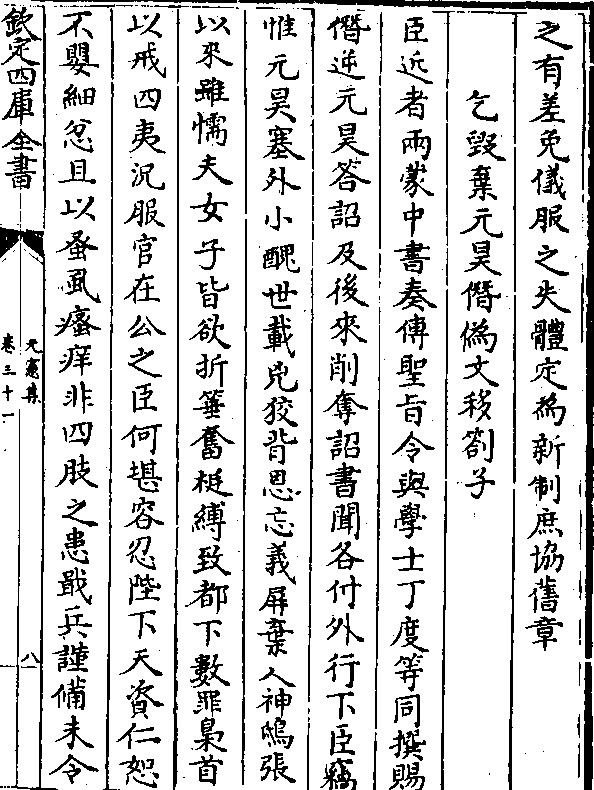 之有差免儀服之失體定為新制庶協舊章
乞毀棄元昊僭偽文移劄子
臣近者兩蒙中書奏傳聖旨令與學士丁度等同撰賜
僭逆元昊答詔及後來削奪詔書聞各付外行下臣竊
惟元昊塞外小醜世載兇狡背恩忘義屏棄人神鴟張
以來雖懦夫女子皆欲折箠奮梃縛致都下數罪梟首
以戒四夷況服官在公之臣何堪容忍陛下天資仁恕
不嬰細忿且以蚤虱癢痒非四肢之患戢兵謹備未令
欽定四庫全書
元憲集
卷三十一
八